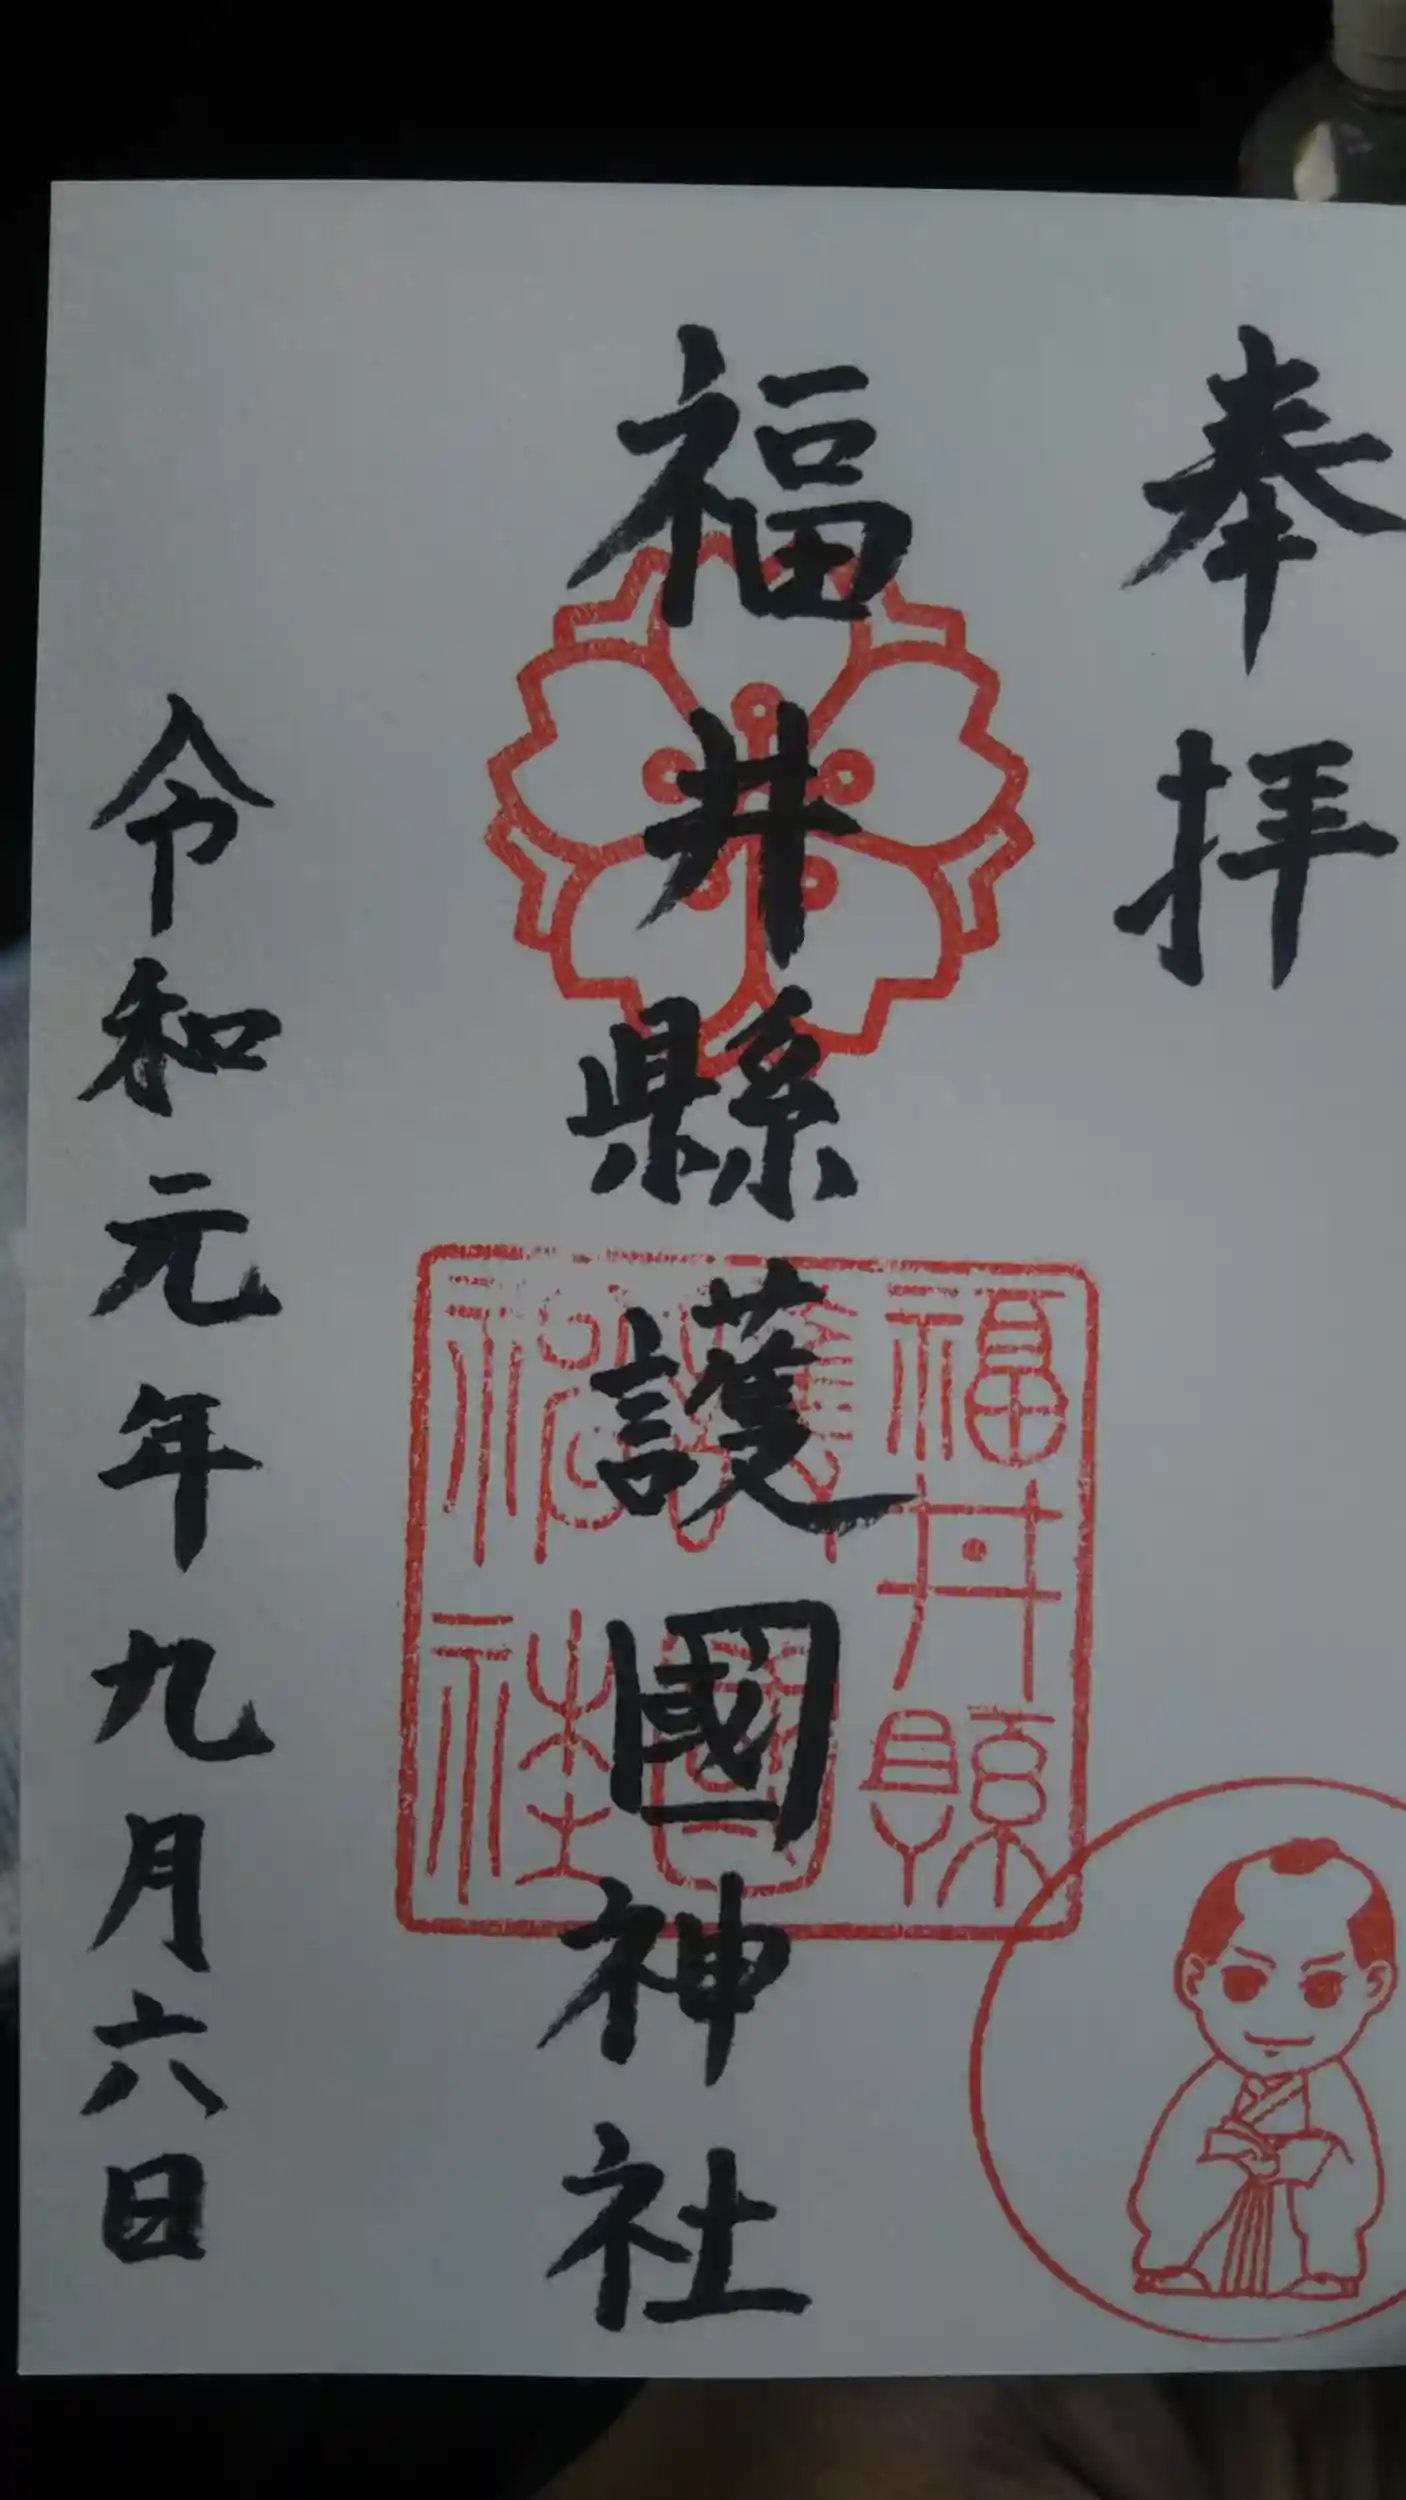 奉拝
福井縣護國神社
福井縣
護國
神社
令和元年九月六日